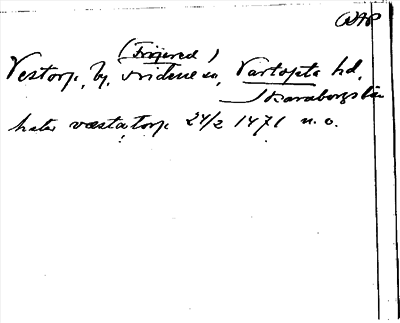 (Finnered)
Vestorp, by, Fridene sn, Vartofta hd,
Skaraborgs län
heter væstatorp 24/2 1471 n. o.